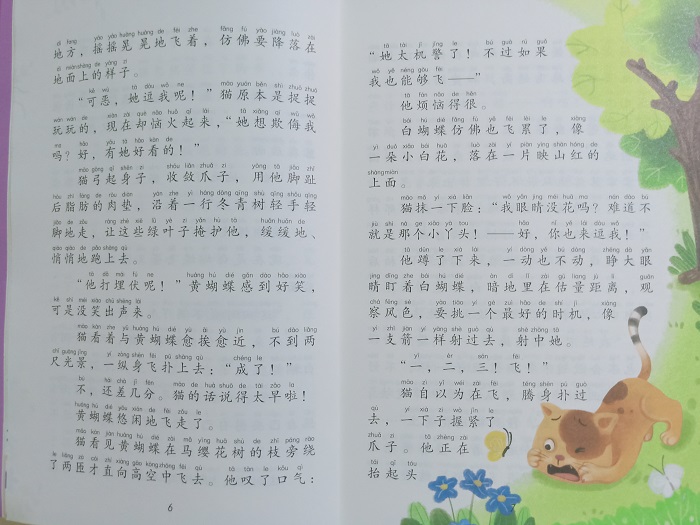 地方，摇摇晃晃地飞着，仿佛要降落在
地面上的样子。
“可恶，她逗我呢！”猫原本是捉捉
玩玩的，现在却恼火起来，“她想欺侮我
吗？好，有她好看的！”
猫弓起身子，收敛爪子，用他脚趾
后脂肪的肉垫，沿着一行冬青树轻手轻
脚地走，让这些绿叶子掩护他，缓缓地、
悄悄地跑上去。
“他打埋伏呢！”黄蝴蝶感到好笑，
可是没笑出声来。
猫看着与黄蝴蝶愈挨愈近，不到两
尺光景，一纵身飞扑上去：“成了！”
不，还差几分。猫的话说得太早啦！
黄蝴蝶悠闲地飞走了。
猫看见黄蝴蝶在马缨花树的枝旁绕
了两匝才直向高空中飞去。他叹了口气：
6
“她太机警了！不过如果
我也能够飞——”
他烦恼得很。
白蝴蝶仿佛也飞累了，像
一朵小白花，落在一片映山红的
上面。
猫抹一下脸：“我眼睛没花吗？难道不
就是那个小丫头！——好，你也来逗我！”
他蹲了下来，一动也不动，睁大眼
睛盯着白蝴蝶，暗地里在估量距离，观
察风色，要挑一个最好的时机，像
一支箭一样射过去，射中她。
“一，二，三！飞！”
猫自以为在飞，腾身扑过
去，一下子握紧了
爪子。他正在
抬起头